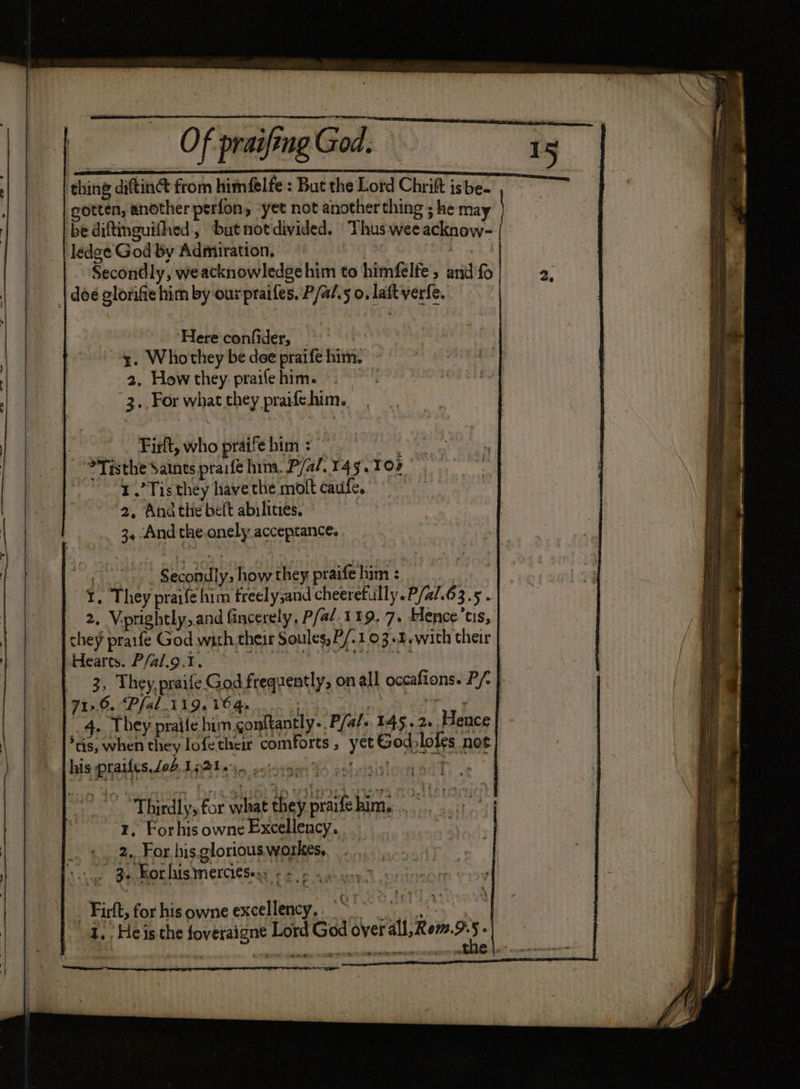 Of praiſing God. 15
thing diſtinct from himſelfe : But the Lord Chriſt is be-
gotten, another perſon, yet not another thing ; he may
be diſtinguiſhed, but not divided. Thus wee acknow-
ledge God by Admiration.
Secondly, we acknowledge him to himſelfe, and ſo 2,
doe glorifie him by our praiſes. Pſal. 50. laſt verſe.
Here conſider,
1. Who they be doe praiſe him.
2. How they praiſe him.
3. For what they praiſe him.
Firſt, who praiſe him :
'Tis the Saints praiſe him. Pſal. 145. 10,
1. 'Tis they have the moſt cauſe.
2. And the beſt abilities.
3. And the onely acceptance.
Secondly, how they praiſe him :
1. They praiſe him freely, and cheerefully. Pſal. 63. 5.
2. Vprightly, and ſincerely, Pſal. 119. 7. Hence 'tis,
they praiſe God with their Soules, Pſ. 103. 1. with their
Hearts. Pſal. 9. 1.
3. They praiſe God frequently, on all occaſions. Pſ.
71. 6. Pſal. 119. 164.
4. They praiſe him conſtantly. Pſal. 145. 2. Hence
'tis, when they loſe their comforts, yet God loſes not
his praiſes. Iob. 1. 21.
Thirdly, for what they praiſe him.
1. For his owne Excellency.
2. For his glorious workes.
3. For his mercies.
Firſt, for his owne excellency.
1. He is the ſoveraigne Lord God over all, Rom. 9. 5.
the